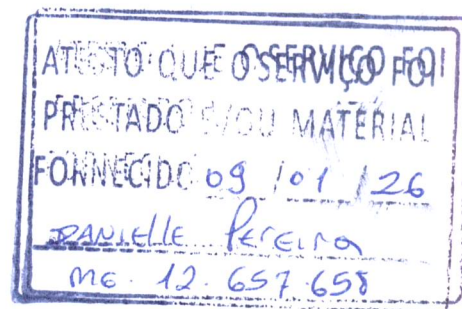 ATESTO QUE O SERVIÇO FOI
PRESTADO E/OU MATERIAL
FORNECIDO 09 / 01 / 26
DANIELLE Pereira
MG. 12.657.658